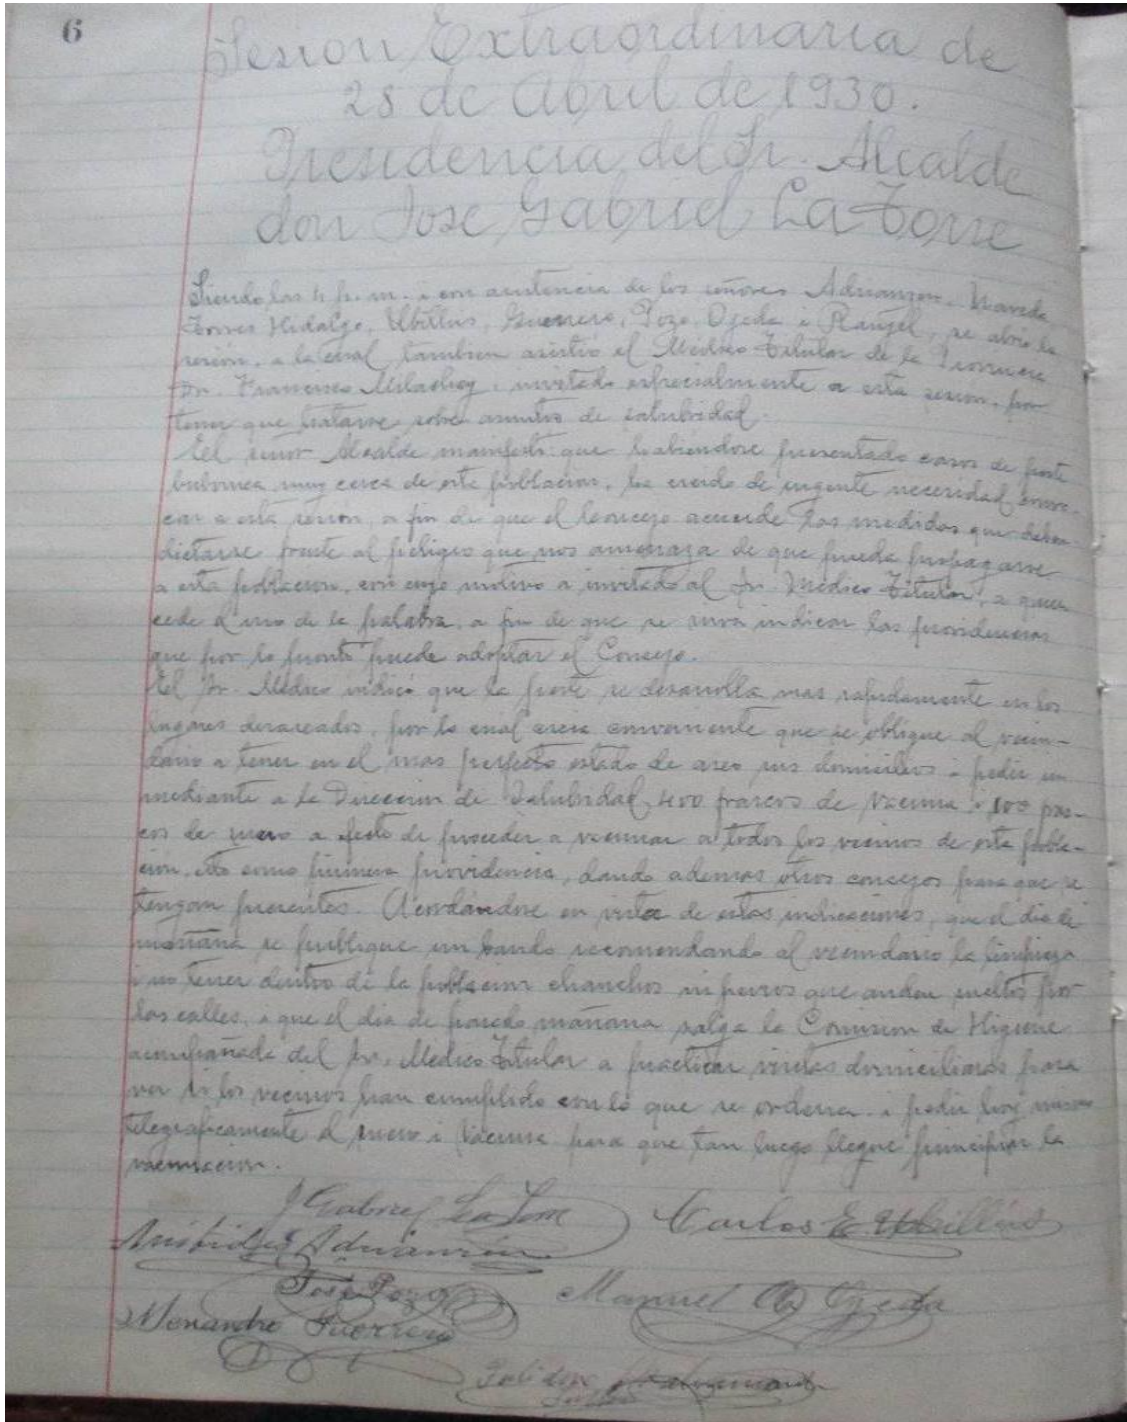 6
Sesion Extraordinaria de
28 de Abril de 1930.
Presidencia del Sr. Alcalde
don Jose Gabriel La Torre
Siendo las 4 p. m. i con asistencia de los señores Adrianzen, Naveda
Torres Hidalgo, Ubillus, Guerrero, Pozo, Ojeda i Rangel, se abrió la
sesión, a la cual tambien asistió el Médico Titular de la Provincia
Dr. Francisco invitado especialmente a esta sesión, por
tener que tratarse sobre asuntos de salubridad.
El señor Alcalde manifestó: que habiendose presentado casos de peste
bubonica muy cerca de esta poblacion, ha creido de urgente necesidad convo-
car a esta sesion, a fin de que el Concejo acuerde las medidas que deben
dictarse frente al peligro que nos amenaza de que pueda propagarse
a esta poblacion, con cuyo motivo a invitado al Sr. Médico Titular, a quien
cede el uso de la palabra, a fin de que se sirva indicar las providencias
que por lo pronto puede adoptar el Concejo.
El Sr. Médico indicó que la peste se desarrolla mas rapidamente en los
lugares desaseados, por lo cual creia conveniente que se obligue al vecin-
dario a tener en el mas perfecto estado de aseo sus domicilios i pedir
mediante a la Dirección de Salubridad, 400 frascos de vacuna i 100 fras-
cos de suero a efecto de proceder a vacunar a todos los vecinos de esta pobla-
cion, como primera providencia, dando ademas otros consejos para que se
tengan presentes. Acordándose en vista de estas indicaciones, que el dia de
mañana se publique un bando recomendando al vecindario la limpieza
i no tener dentro de la poblacion chanchos ni perros que anden sueltos por
las calles, i que el dia de pasado mañana salga la Comision de Higiene
acompañada del Sr. Médico Titular a practicar visitas domiciliarias para
ver si los vecinos han cumplido con lo que se ordena i pedir hoy mismo
telegraficamente el suero i vacuna para que tan luego llegue principiar la
vacunacion.
J Gabriel La Torre Carlos E Ubillús
Aristides Adrianzén
José Pozo Manuel Ojeda
Menandro Guerrero